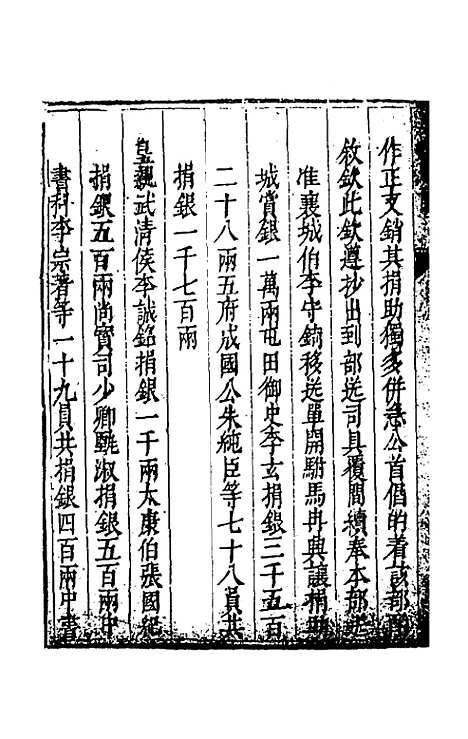 作正支銷其捐助獨多併急公首倡的着該部酌
敘欽此欽遵抄出到部送司具覆間續奉本部送
准襄城伯李守錡移送單開駙馬冉興讓捐助
城賞銀一萬兩屯田御史李玄捐銀二千五百
二十八兩五府成國公朱純臣等七十八員共
捐銀一千七百兩
皇親武清侯李誠銘捐銀一千兩太康伯張國紀
捐銀五百兩尚寶司少卿甄淑捐銀五百兩中
書科李宗著等一十九員共捐銀四百兩中書